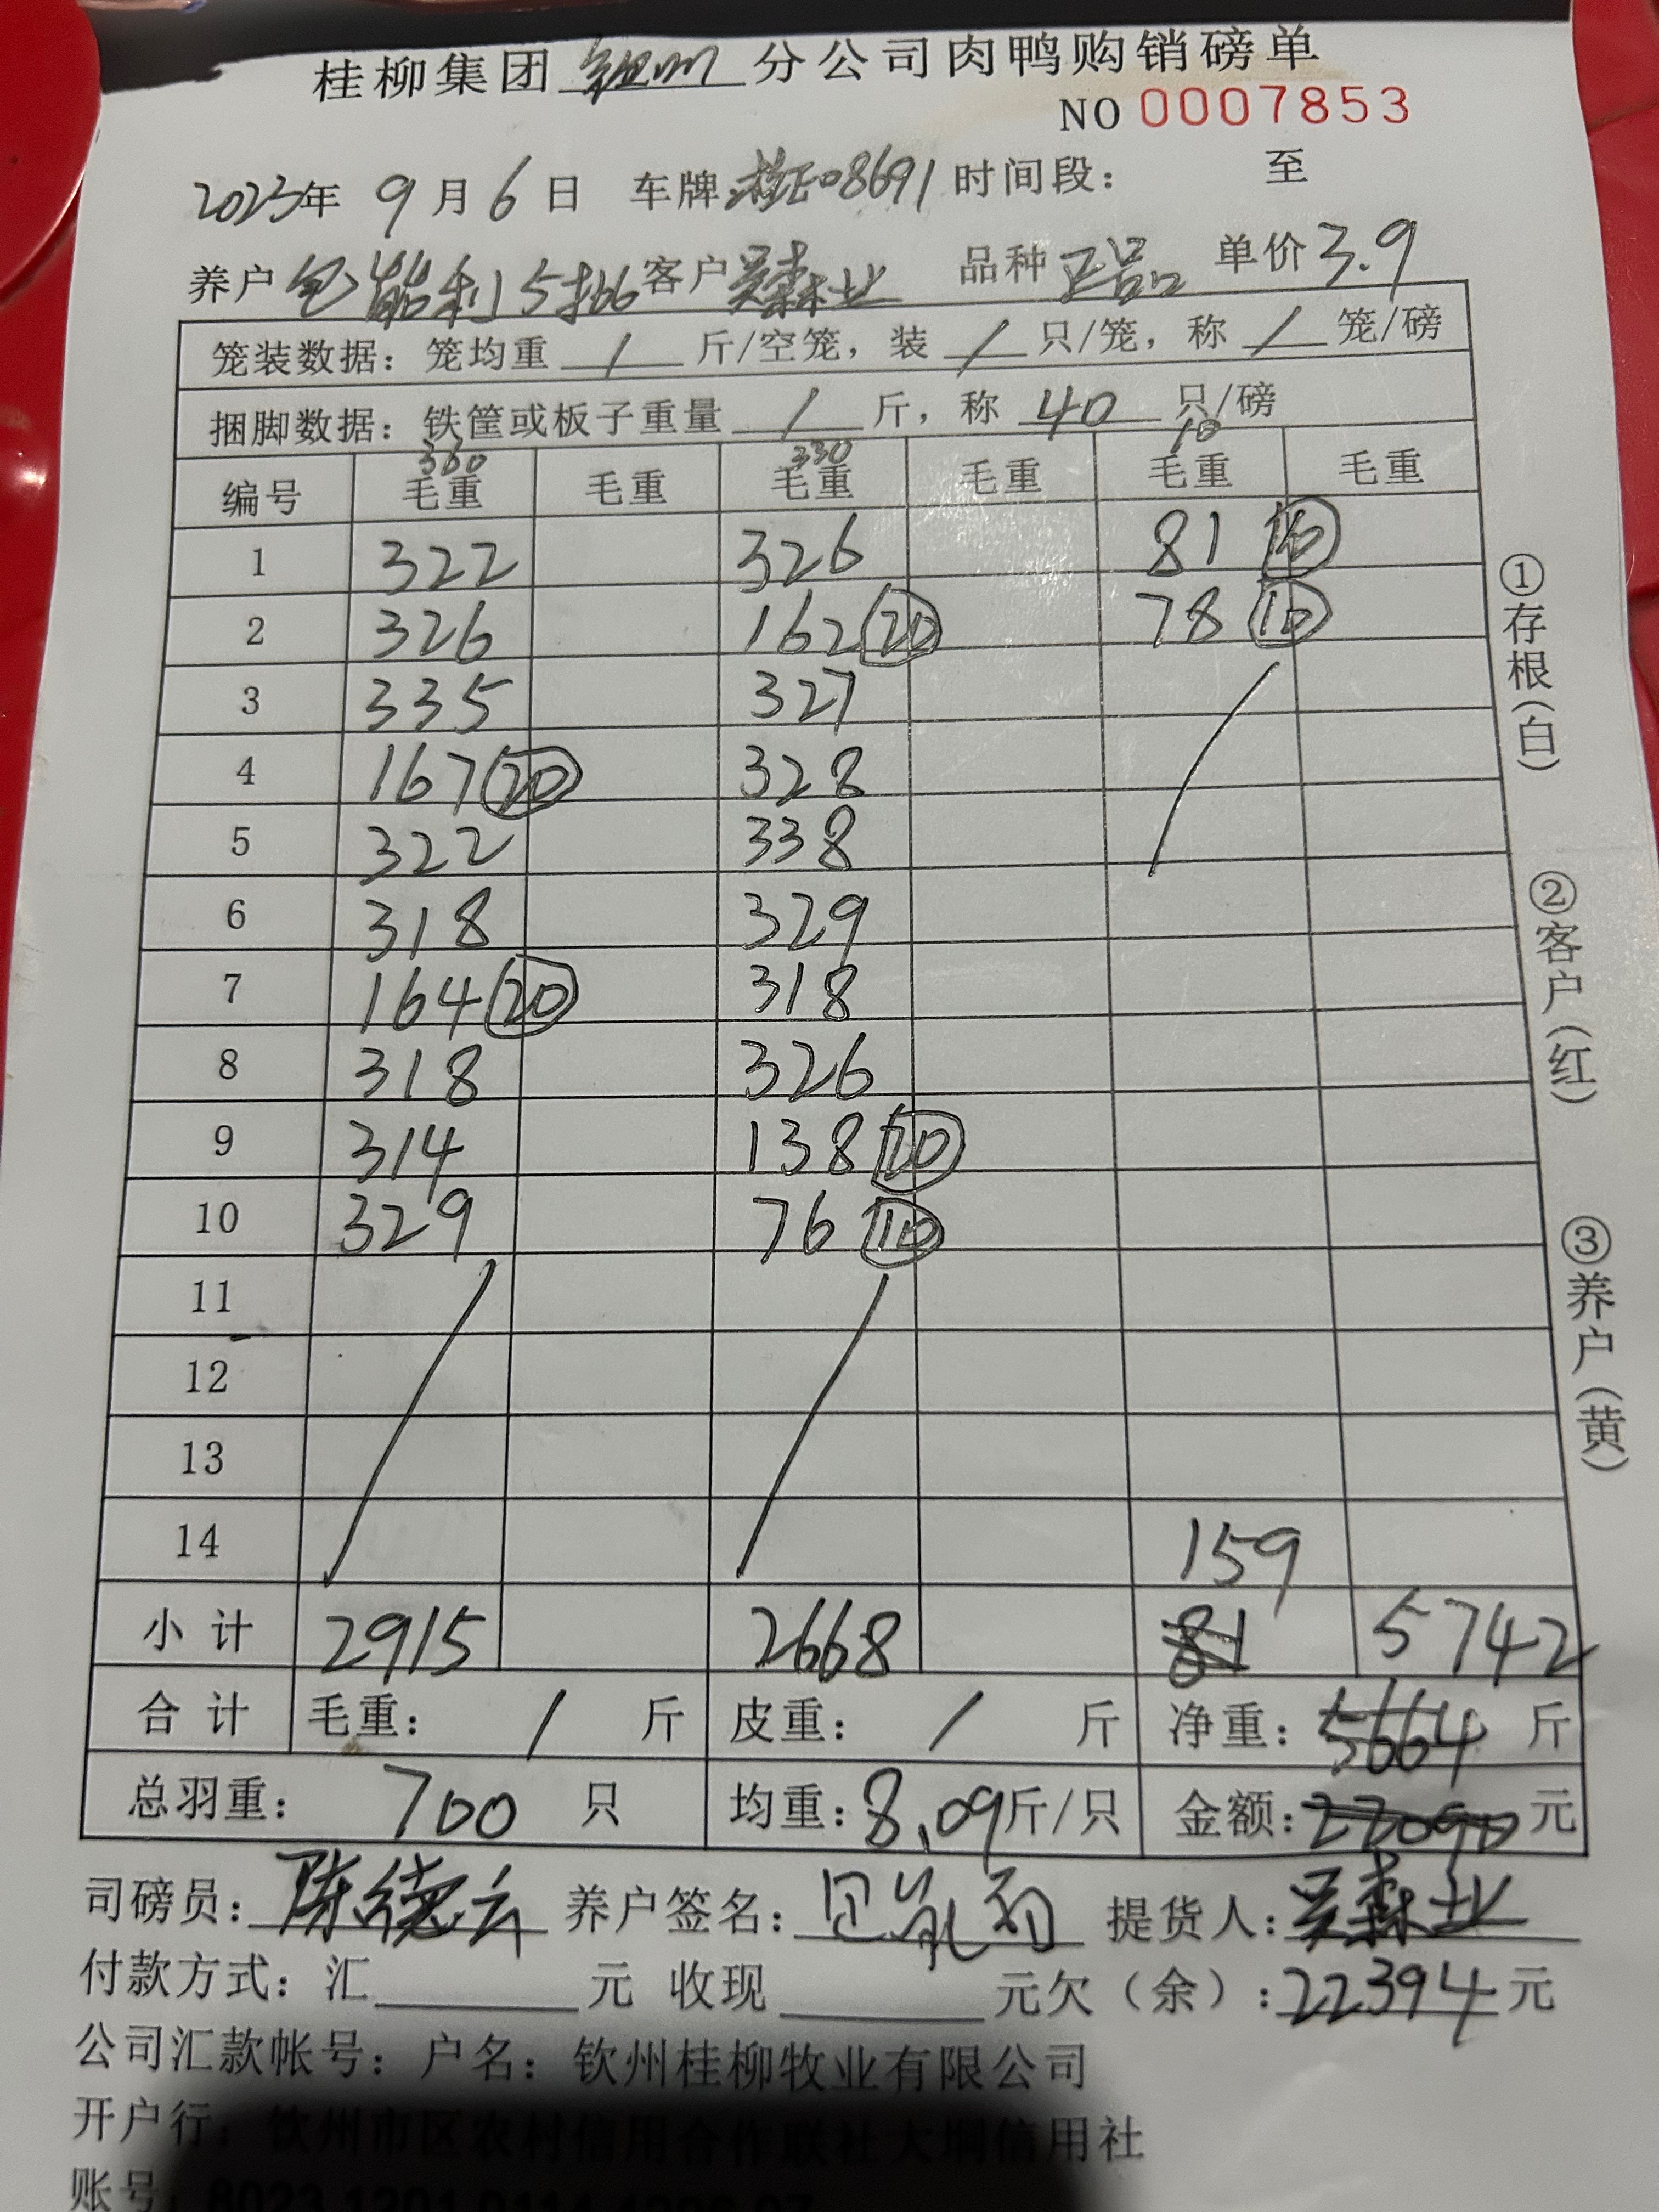 桂柳集团 钦州 分公司肉鸭购销磅单
NO 0007853
2023年 9月 6日 车牌 08691 时间段： 至
养户 包能利 5批 客户 吴森业 品种 正品 单价 3.9
笼装数据：笼均重 / 斤/空笼，装 / 只/笼，称 / 笼/磅
捆脚数据：铁筐或板子重量 / 斤，称 40 只/磅
360 330 10
编号 毛重 毛重 毛重 毛重 毛重 毛重
1 322 326 81
2 326 162 20 78 10
3 335 327
4 167 20 328
5 322 338
6 318 329
7 164 20 318
8 318 326
9 314 138 20
10 329 76 10
11
12
13
14 159
小计 2915 2668 81 5742
合计 毛重： / 斤 皮重： / 斤 净重：5664 斤
总羽重： 700 只 均重：8.09斤/只 金额：22090 元
司磅员：陈德云 养户签名： 提货人：吴森业
付款方式：汇 元 收现 元欠（余）：22394元
公司汇款帐号：户名：钦州桂柳牧业有限公司
开户行：钦州市区农村信用合作联社大垌信用社
账号：8023 1201 0114
①存根(白)
②客户(红)
③养户(黄)